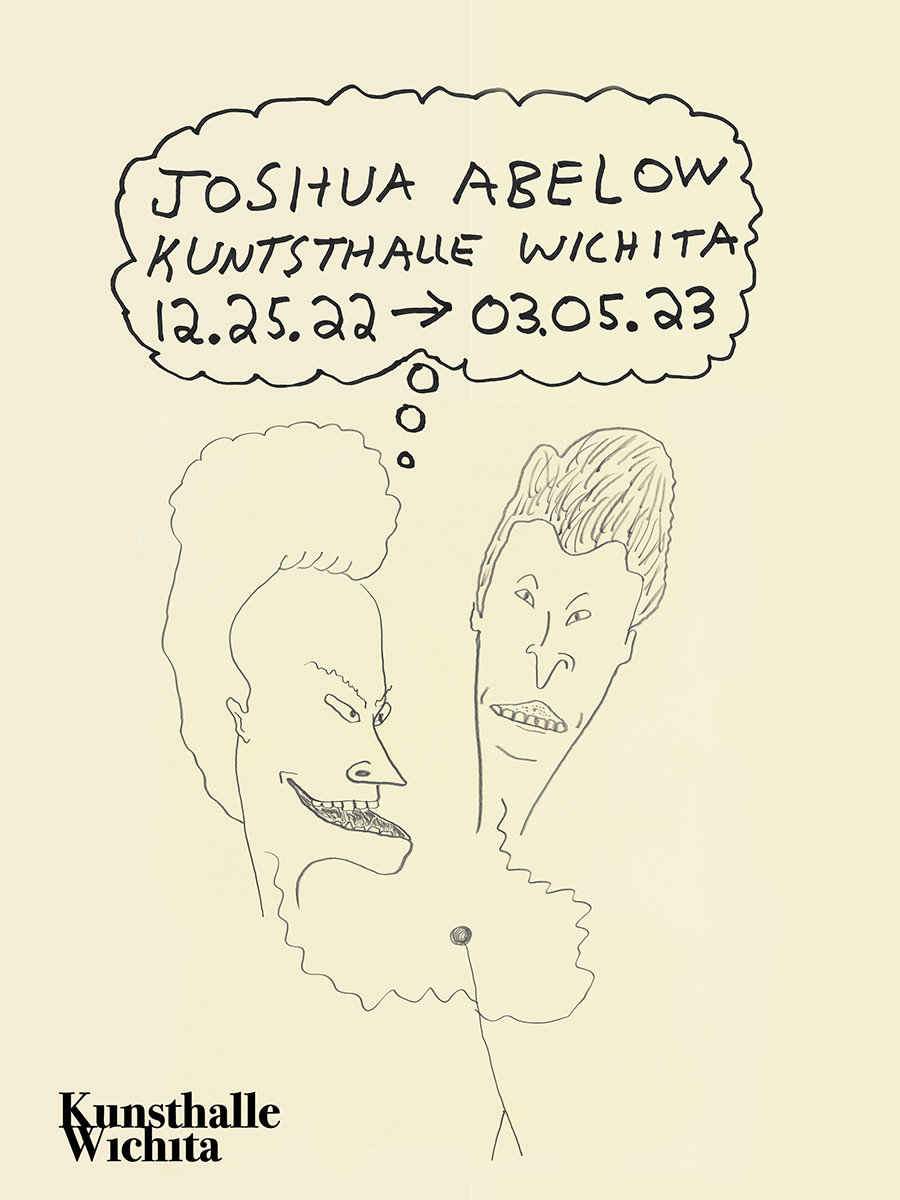 JOSHUA ABELOW
KUNTSTHALLE WICHITA
12.25.22 → 03.05.23
Kunsthalle
Wichita